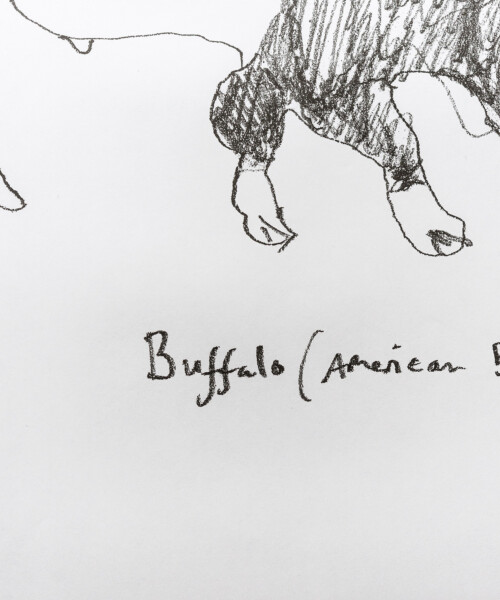 Buffalo (American B